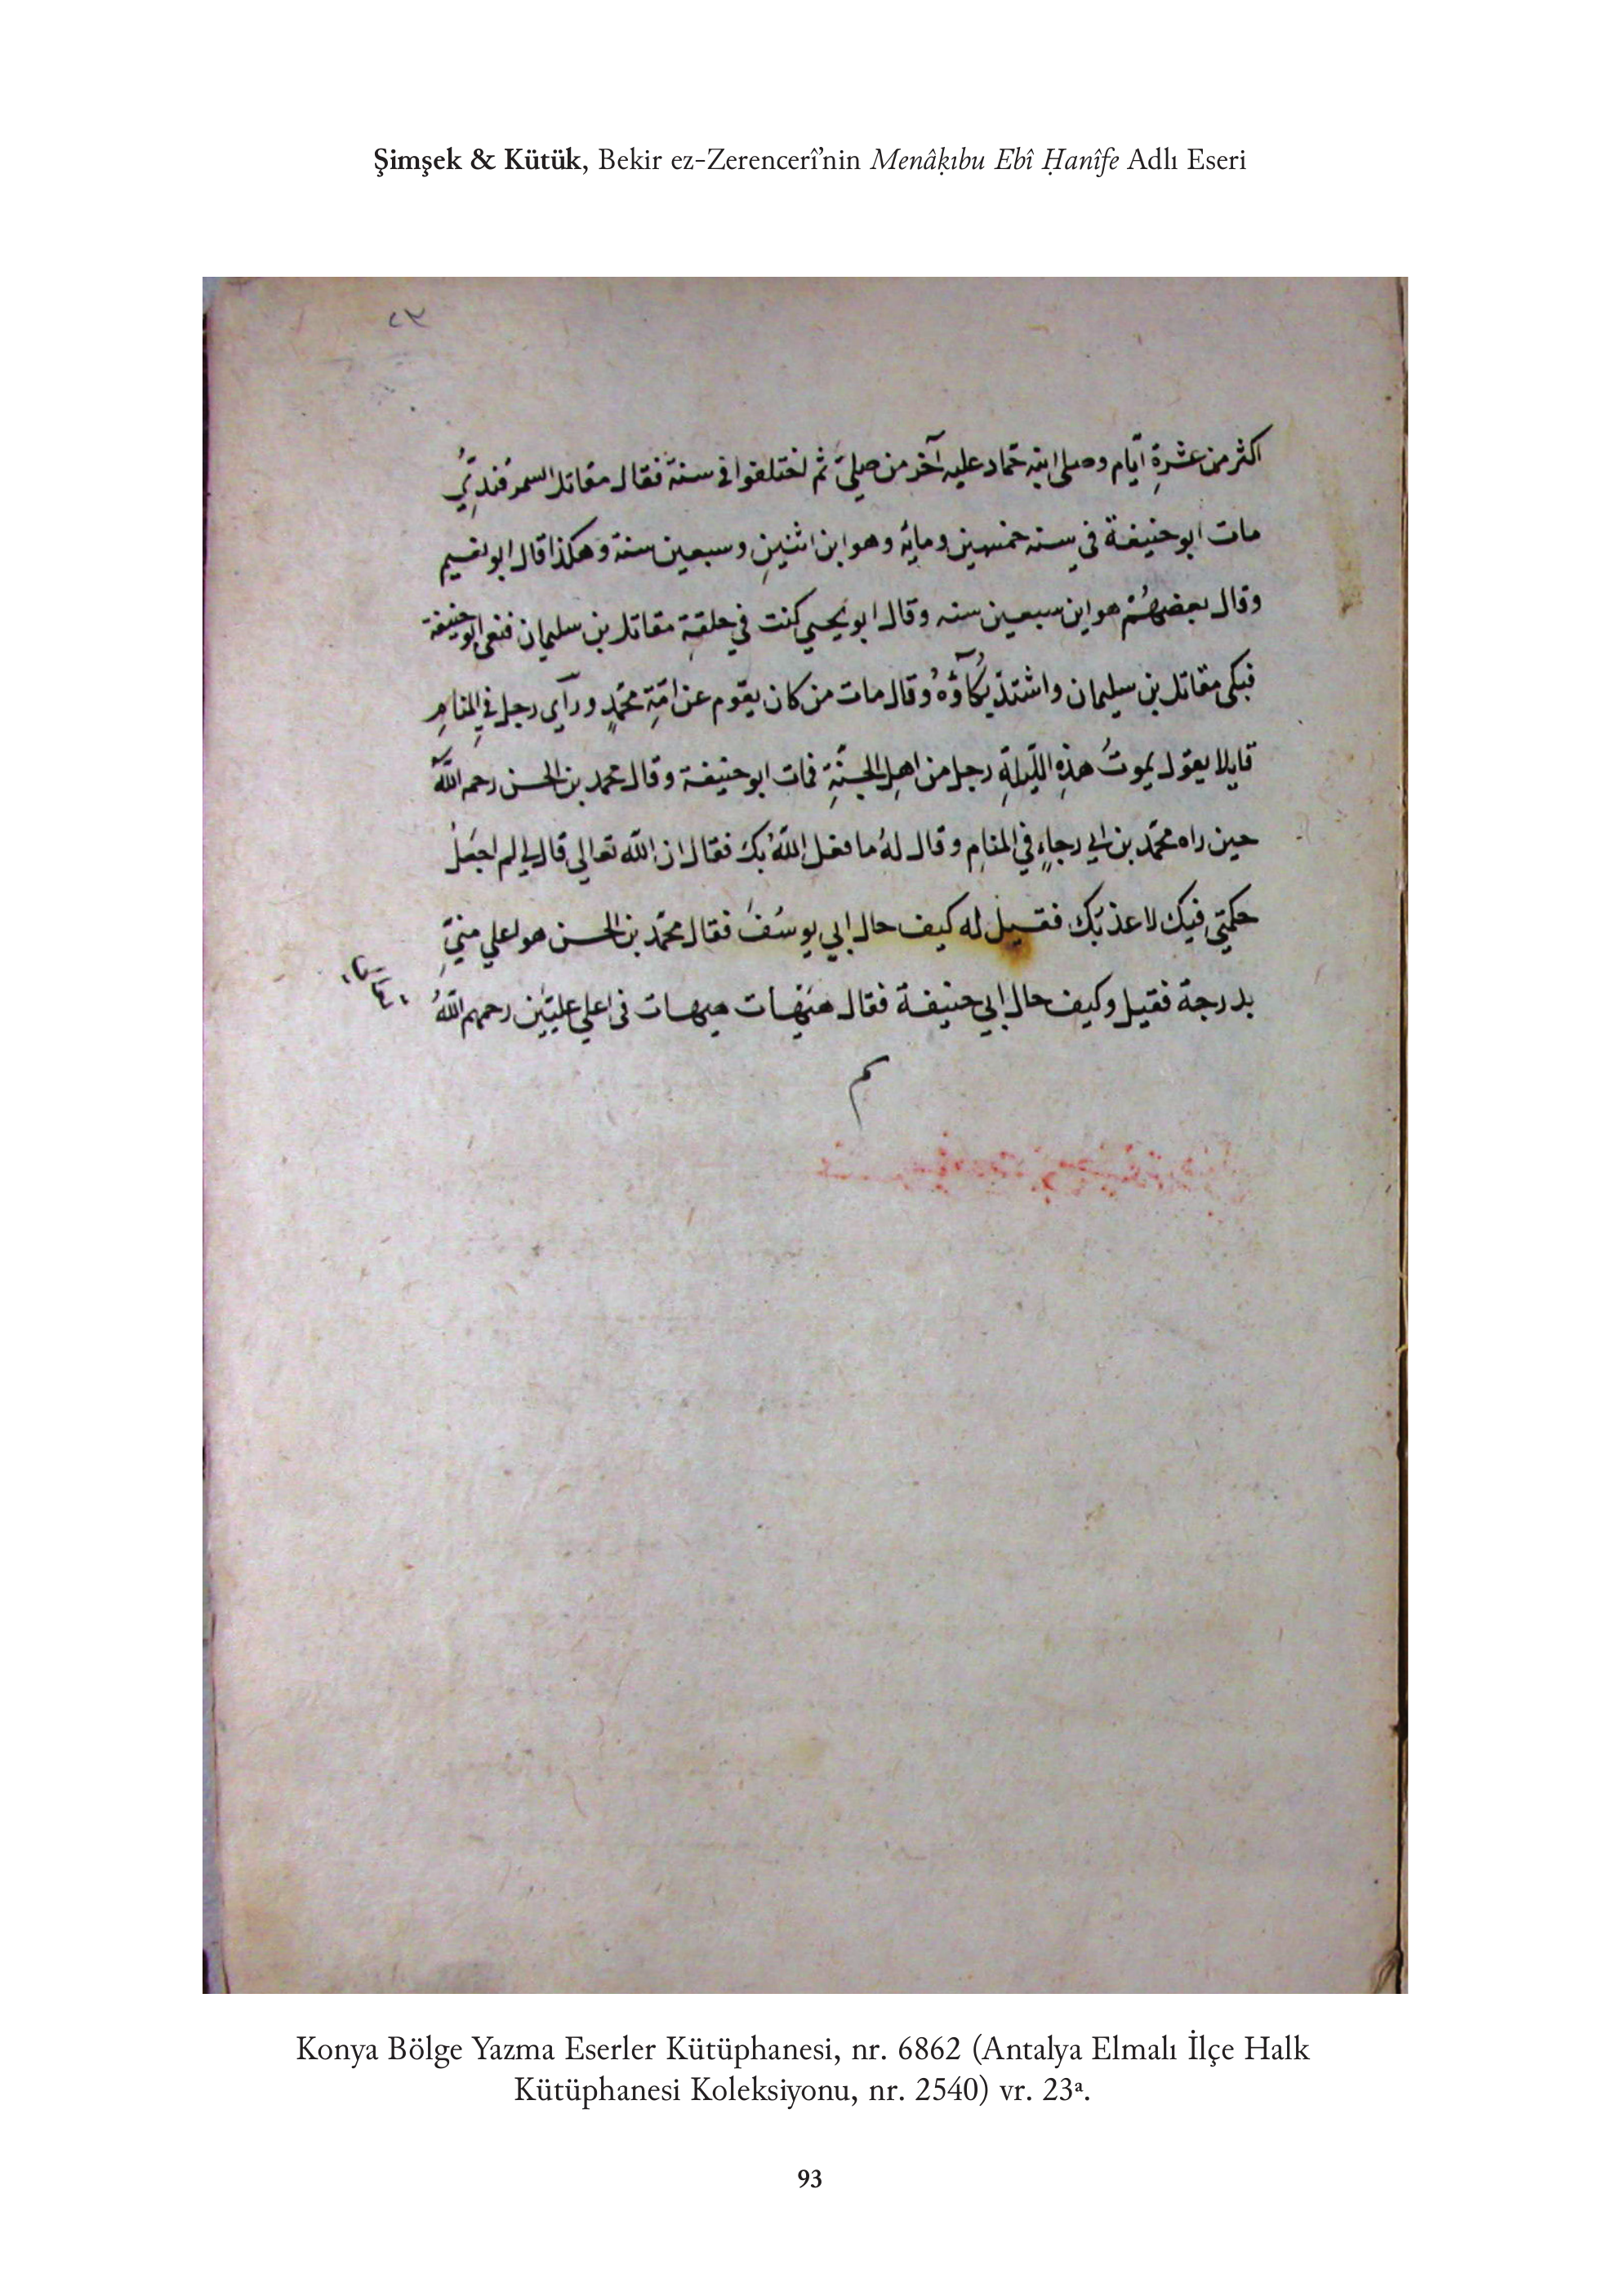 Şimşek & Kütük, Bekir ez-Zerencerî’nin Menâḳıbu Ebî Ḥanîfe Adlı Eseri
٢٣
اكثر من عشرةِ ايّام وصلى ابنه حمّاد عليه آخر من صلىّ ثم اختلفوا فى سنةّ فقال مقاتل السمرقنديّ
مات ابو حنيفة في سنه خمسين ومائه وهو ابن اثنينِ وسبعين سنة وهكذا قال ابو نعيم
وقال بعضهُم هو ابن سبعين سنه وقال ابو يحيي كنت في حلقةِ مقاتل بن سليمان فنعى ابو حنيفة
فبكى مقاتل بن سليمان واشتدّ بُكآؤُهُ وقال مات من كان يقوم عن امّةِ محّمدٍ ورآى رجل في المنامِ
قايلا يقول يموتُ هذِهِ اللّيلةِ رجل من اهلِ الجنّةِ فمات ابو حنيفة وقال محمد بن الحسن رحمه اللّه
حين راه محمّد بن ابي رجاءٍ في المنامِ وقال لهُ ما فعل اللّهُ بكَ فقال ان اللّه تعالى قال لي لم اجعَلْ
حكمتي فيك لاعذبّك فقيل له كيف حال ابي يوسُفَ فقال محّمد بن الحسن هو اعلي منيّ
بدرجة فقيل وكيف حال ابي حنيفة فقال هيهات هيهات فى اعلي عليّين رحمهم اللّهُ
م
Konya Bölge Yazma Eserler Kütüphanesi, nr. 6862 (Antalya Elmalı İlçe Halk
Kütüphanesi Koleksiyonu, nr. 2540) vr. 23ᵃ.
93